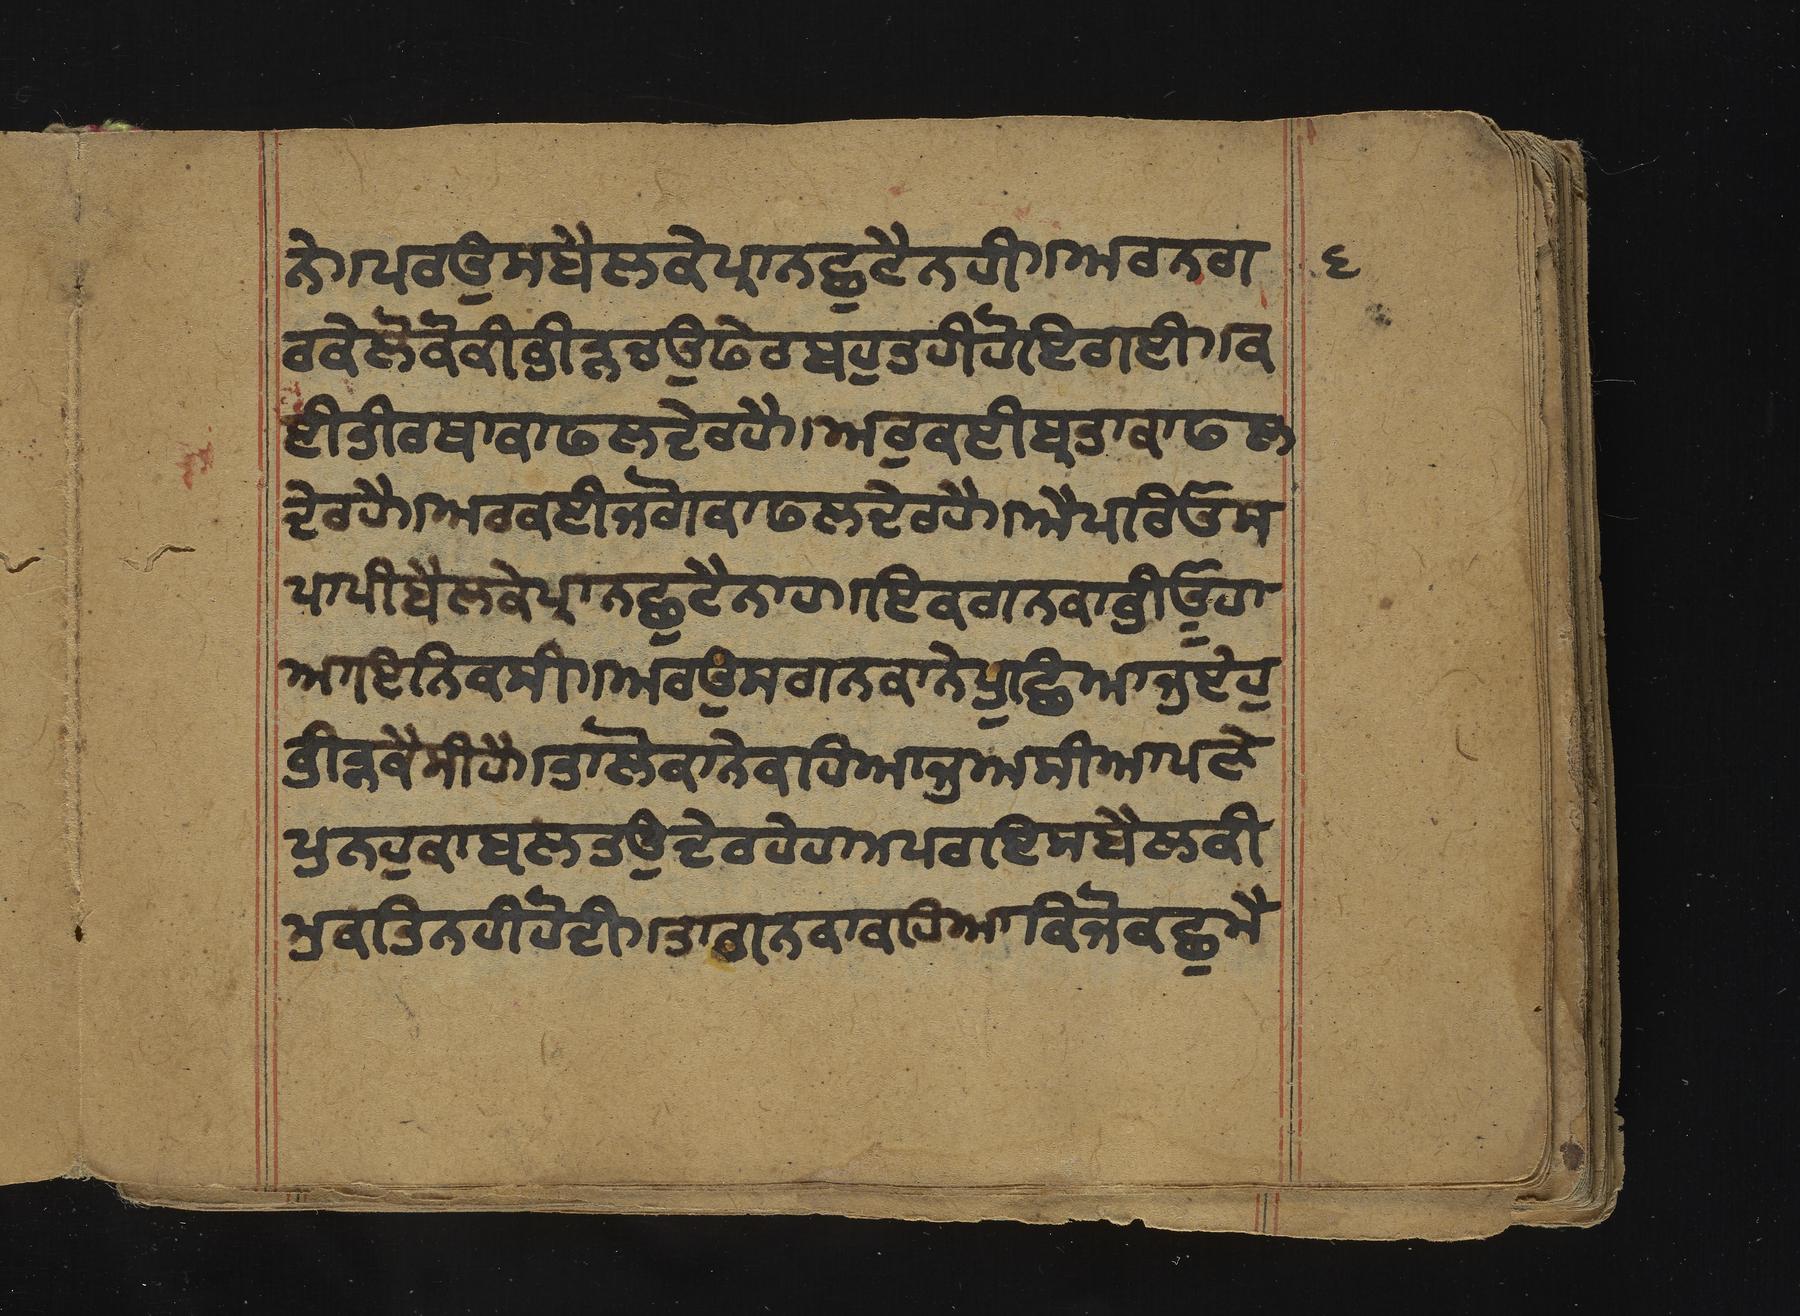 ਨੇ।ਪਰਉਸਬੈਲਕੇਪ੍ਰਾਨਛੁਟੈਨਹੀ।ਅਰਨਗ ੬
ਰਕੇਲੋਕੋਕੀਭੀੜਚਉਫੇਰਬਹੁਤਹੀਹੋਇਗਈ।ਕ
ਈਤੀਰਥਾਕਾਫਲਦੇਰਹੈ।ਅਰੁਕਈਬ੍ਰਤਾਕਾਫਲ
ਦੇਰਹੈ।ਅਰਕਈਜੋਗਕਾਫਲਦੇਰਹੈ।ਐਪਰਿਓਸ
ਪਾਪੀਬੈਲਕੇਪ੍ਰਾਨਛੁਟੈਨਾਹ।ਇਕਗਨਕਾਭੀਓੁਹਾ
ਆਇਨਿਕਸੀ।ਅਰਉਸਗਨਕਾਨੇਪੁਛਿਆਜੁਏਹੁ
ਭੀੜਕੈਸੀਹੈ।ਤਾਲੋਕਾਨੇਕਹਿਆਜੁਅਸੀਆਪਣੇ
ਪੁਨਹੁਕਾਬਲਤਉਦੇਰਹੇਹਾਅਪਰਇਸਬੈਲਕੀ
ਮੁਕਤਿਨਹੀਹੋਦੀ।ਤਾਗਨਕਾਕਹਿਆਕਿਜੋਕਛੁਮੈ